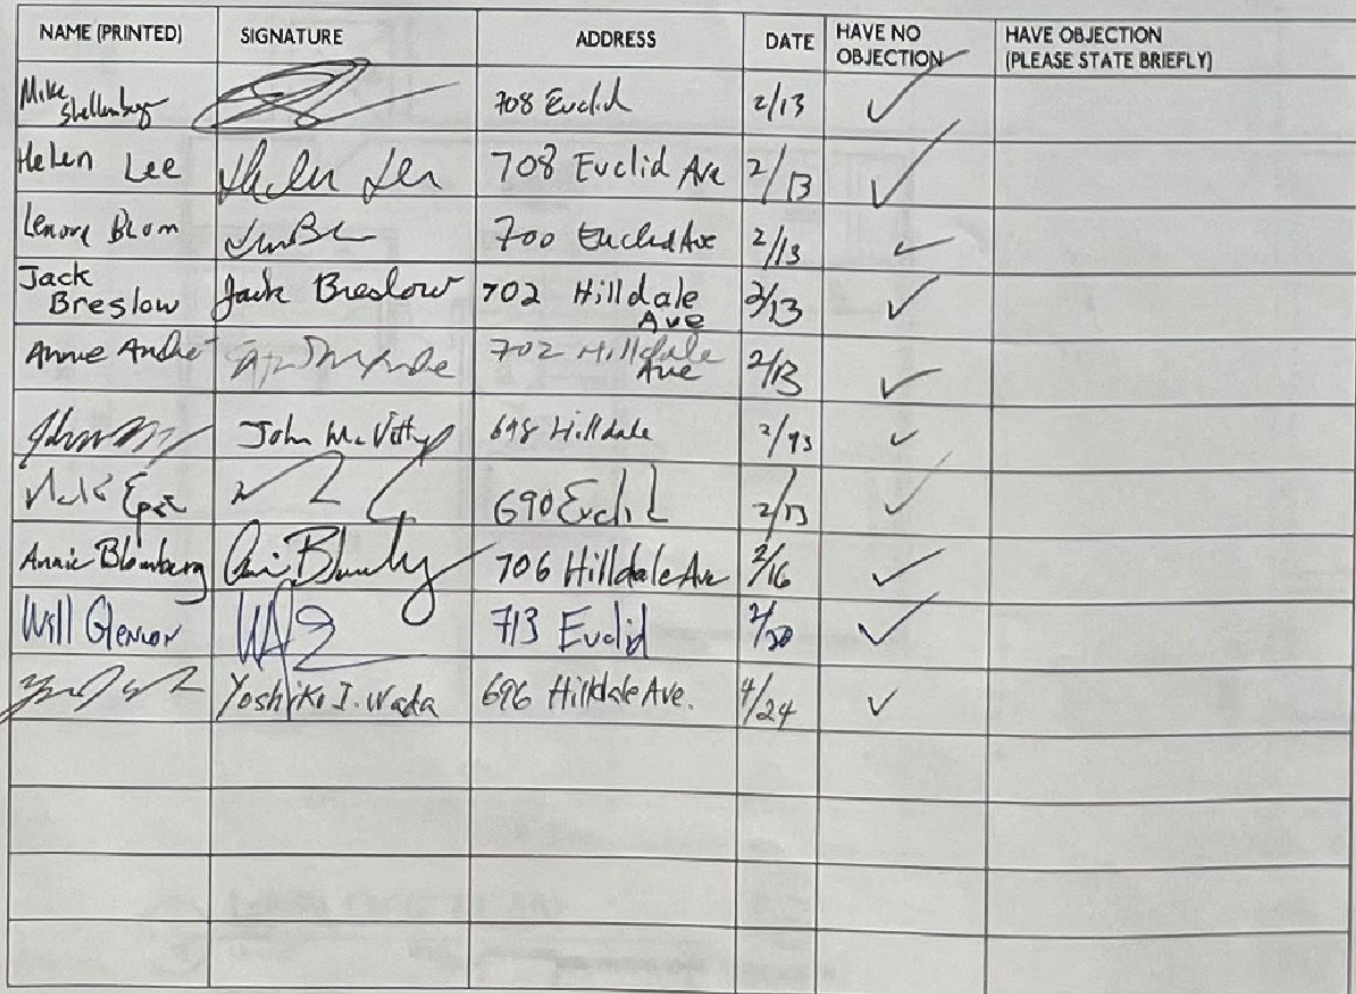 NAME (PRINTED) SIGNATURE ADDRESS DATE HAVE NO OBJECTION HAVE OBJECTION (PLEASE STATE BRIEFLY)
Mike Shellenberger 708 Euclid 2/13 ✓
Helen Lee Helen Lee 708 Euclid Ave 2/13 ✓
Lenore Blom 700 Euclid Ave 2/13 ✓
Jack Breslow Jack Breslow 702 Hilldale Ave 2/13 ✓
Annie André 702 Hilldale Ave 2/13 ✓
John McVitty 698 Hilldale 2/13 ✓
690 Euclid 2/13 ✓
Annie Blomberg 706 Hilldale Ave 2/16 ✓
Will 713 Euclid 2/20 ✓
Yoshiko I. Wada 696 Hilldale Ave. 4/24 ✓